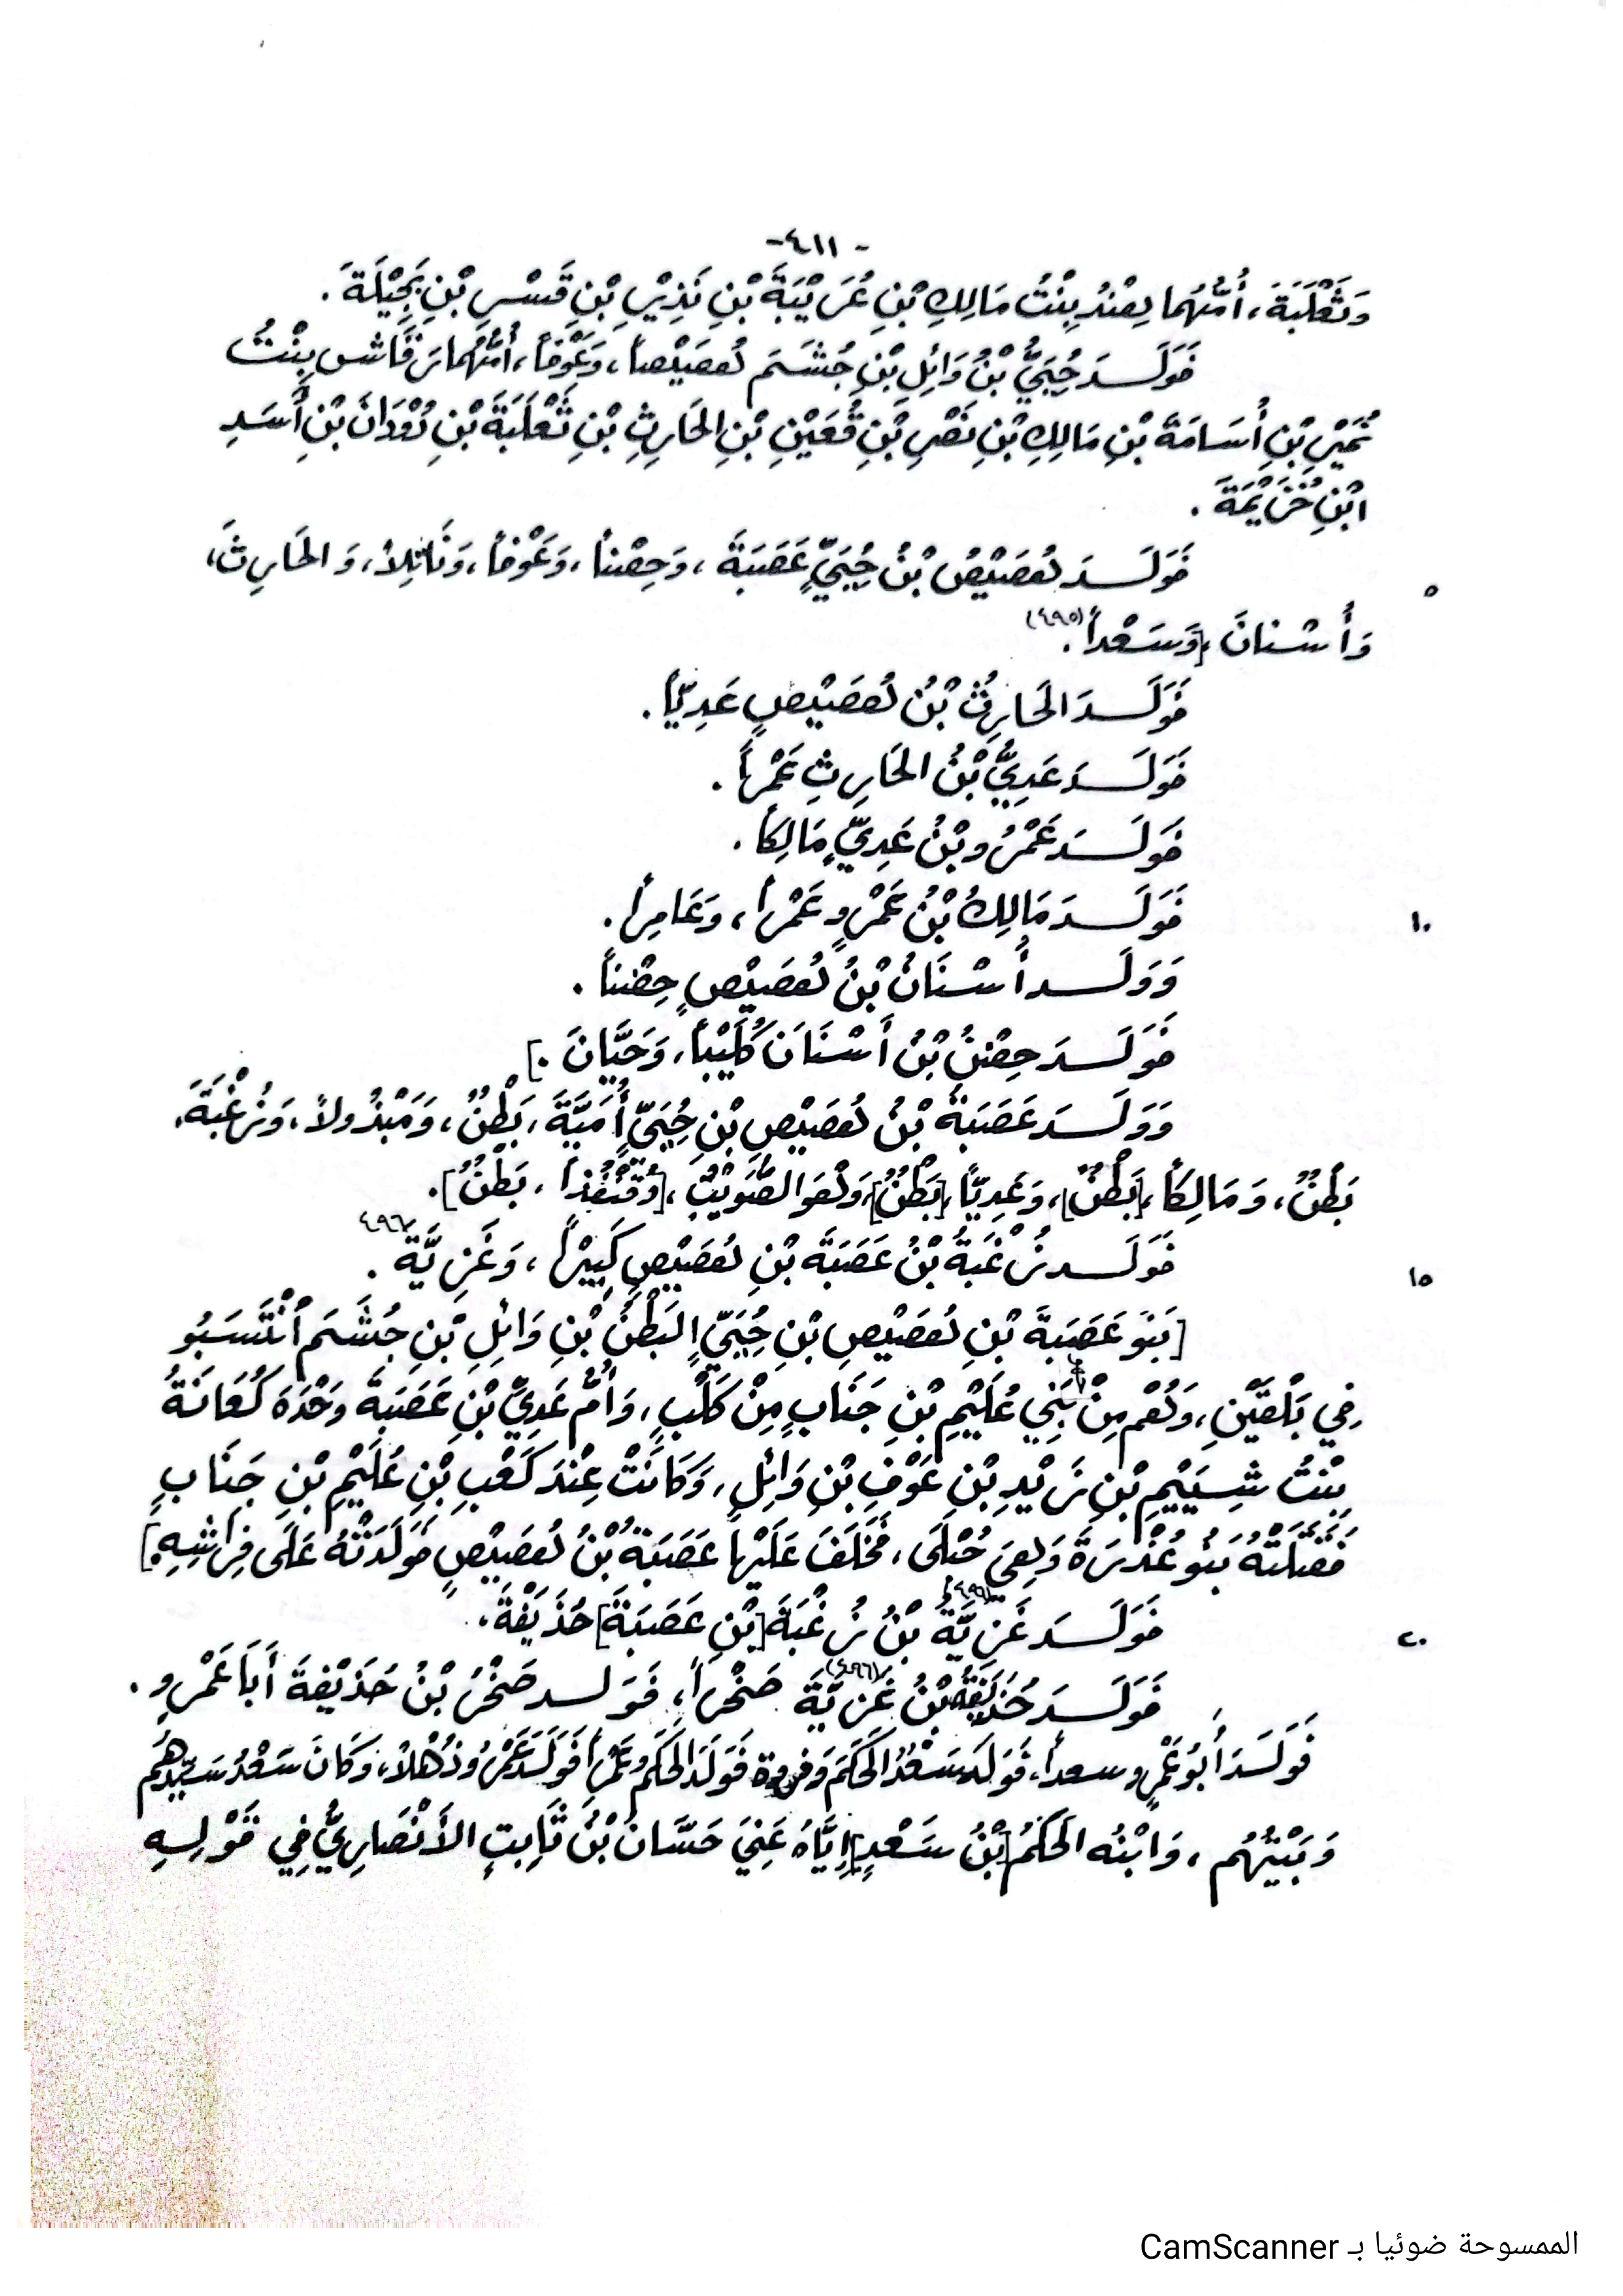 -٤١١-
وَثَعْلَبَةَ، أُمُّهُما هِنْدُ بِنْتُ مَالِكِ بْنِ عُرَيْبَةَ بْنِ نَذِيْرِ بْنِ قَسْرِ بْنِ بَجِيْلَةَ.
فَوَلَدَ حُيَيُّ بْنُ وَائِلِ بْنِ جُشَمَ هُصَيْصاً، وَعَوْفاً، أُمُّهُما رَقَاشِ بِنْتُ
نُمَيْرِ بْنِ أُسَامَةَ بْنِ مَالِكِ بْنِ نَصْرِ بْنِ قُعَيْنِ بْنِ الحَارِثِ بْنِ ثَعْلَبَةَ بْنِ دُوْدَانَ بْنِ أَسَدِ
ابْنِ خُزَيْمَةَ.
فَوَلَدَ هُصَيْصُ بْنُ حُيَيٍّ عَصَبَةَ، وَحِصْناً، وَعَوْفاً، وَنَائِلاً، وَالحَارِثَ، ٥
وَأَسْنانَ [وَسَعْداً](٤٩٥).
فَوَلَدَ الحَارِثُ بْنُ هُصَيْصٍ عَدِيّاً.
فَوَلَدَ عَدِيُّ بْنُ الحَارِثِ عَمْراً.
فَوَلَدَ عَمْرُو بْنُ عَدِيٍّ مَالِكاً.
فَوَلَدَ مَالِكُ بْنُ عَمْرٍو عَمْراً، وَعَامِراً. ١٠
وَوَلَدَ أَسْنَانُ بْنُ هُصَيْصٍ حِصْناً.
فَوَلَدَ حِصْنُ بْنُ أَسْنَانَ كُلَيْباً، وَحَيَّانَ.]
وَوَلَدَ عَصَبَةُ بْنُ هُصَيْصِ بْنِ حُيَيٍّ أُمَيَّةَ، بَطْنٌ، وَمَبْذُولاً، وَزُغْبَةَ،
بَطْنٌ، وَمَالِكاً،[بَطْنٌ]، وَعَدِيّاً،[بَطْنٌ]، وَهُوَ الصُّوَيْتُ،[وَقُنْفُذاً، بَطْنٌ].
فَوَلَدَ زُغْبَةُ بْنُ عَصَبَةَ بْنِ هُصَيْصٍ كَبِيْراً، وَغَزِيَّةَ ٤٩٦. ١٥
[بَنُو عَصَبَةَ بْنِ هُصَيْصِ بْنِ حُيَيٍّ البَطْنُ بْنِ وَائِلِ بْنِ جُشَمَ انْتَسَبُو
فِي بَلْقَيْنِ، وَهُمْ مِنْ بَنِي عُلَيْمِ بْنِ جَنَابٍ مِنْ كَلْبٍ، وَأُمُّ عَدِيِّ بْنِ عَصَبَةَ وَحْدَهُ
بِنْتُ شِيَيْمِ بْنِ زَيْدِ بْنِ عَوْفِ بْنِ وَائِلٍ، وَكَانَتْ عِنْدَ كَعْبِ بْنِ عُلَيْمِ بْنِ جَنَابٍ
فَقَتَلَتْهُ بَنُو عُذْرَةَ وَهِيَ حُبْلَى، فَخَلَفَ عَلَيْها عَصَبَةُ بْنُ هُصَيْصٍ فَوَلَدَتْهُ عَلَى فِرَاشِهِ.]
فَوَلَدَ غَزِيَّةُ بْنُ زُغْبَةَ [بْنِ عَصَبَةَ] حُذَيْفَةَ. ٢٠
فَوَلَدَ حُذَيْفَةُ بْنُ غَزِيَّةَ (٤٩٦) صَخْراً، فَوَلد صَخْرُ بْنُ حُذَيْفَةَ أَبَا عَمْرٍو.
فَوَلَدَ أَبُو عَمْرٍو سعداً، فَوَلَدَ سَعْدُ الحَكَمَ وَفروة فَوَلَدَ الحَكَمُ عَمْراً فَوَلَدَ عَمْرُو ذُهْلاً، وَكَانَ سَعْدُ سَيِّدَهُم
وَبَيْتُهُم، وَابْنُه الحَكَمُ [بْنُ سَعْدٍ] إِيَّاهُ عَنِيَ حَسَّانُ بْنُ ثَابِتٍ الأَنْصَارِيُّ فِي قَوْلِهِ
الممسوحة ضوئيا بـ CamScanner